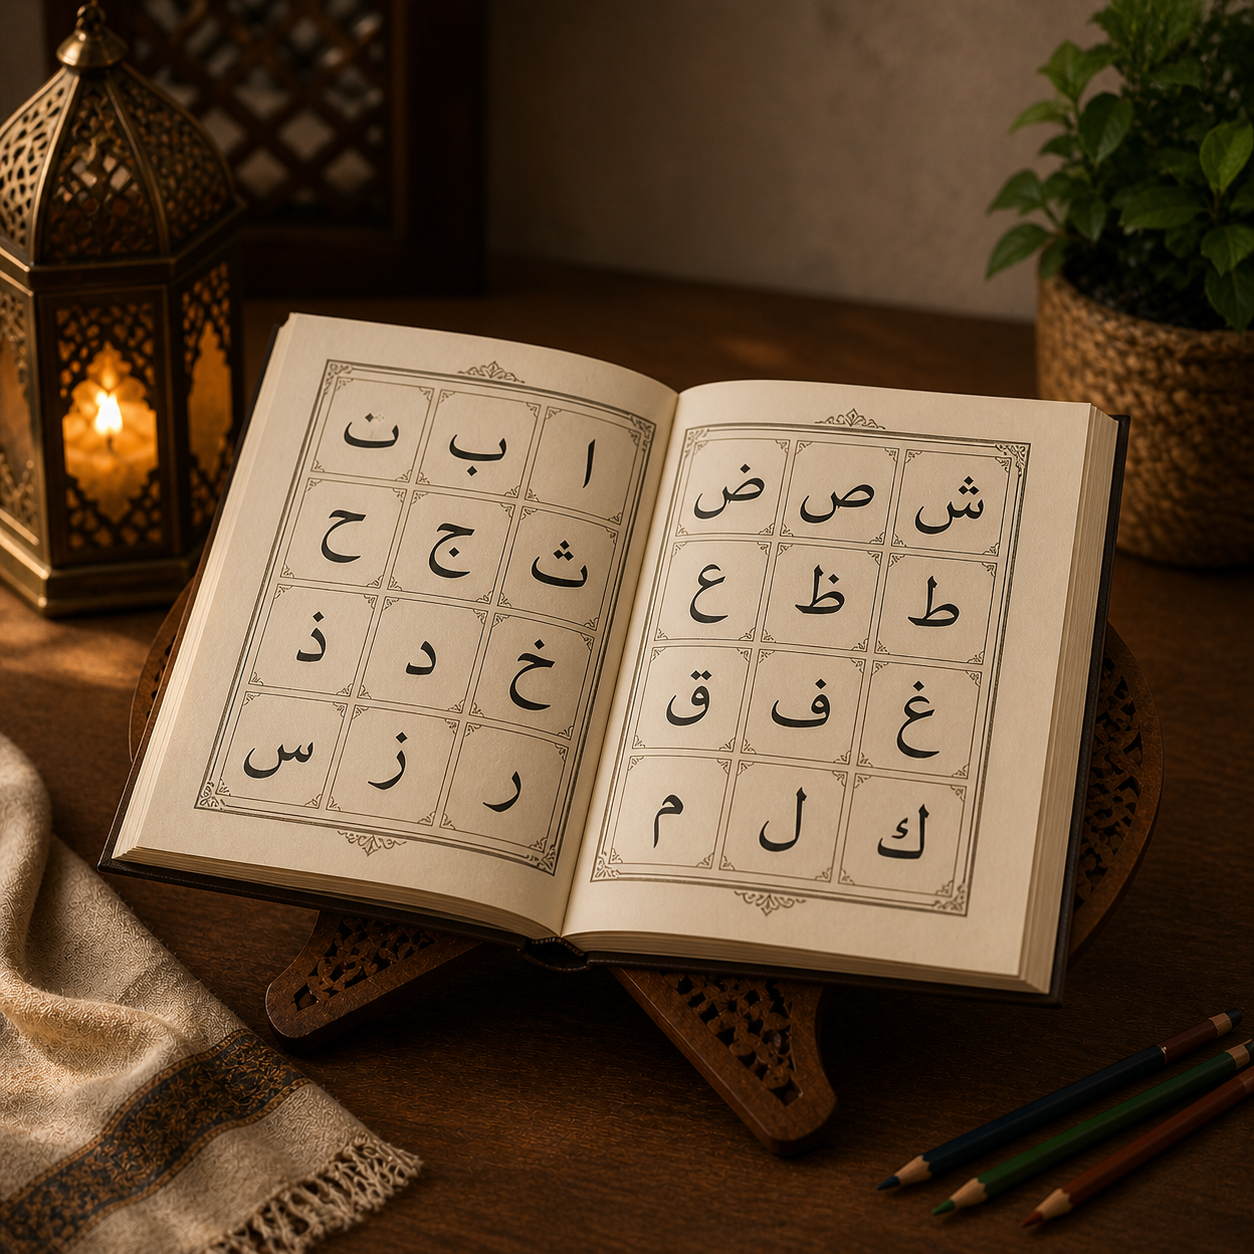 ا ب ت
ث ج ح
خ د ذ
ر ز س
ش ص ض
ط ظ ع
غ ف ق
ك ل م